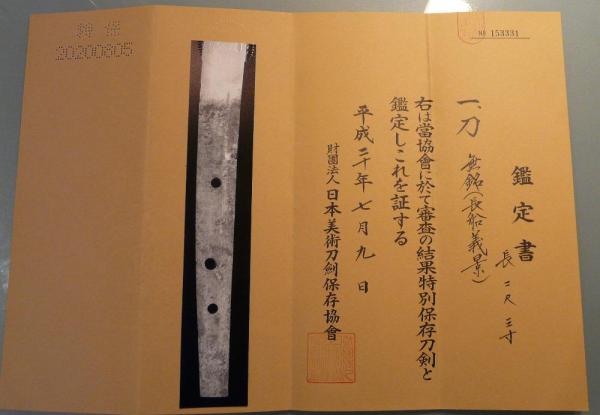 № 153331
鑑定書
一、刀 無銘(長船義景)
長 二尺三寸
右は當協會に於て審査の結果特別保存刀剣と
鑑定しこれを証する
平成二十年七月九日
財團法人日本美術刀劍保存協會
20200805